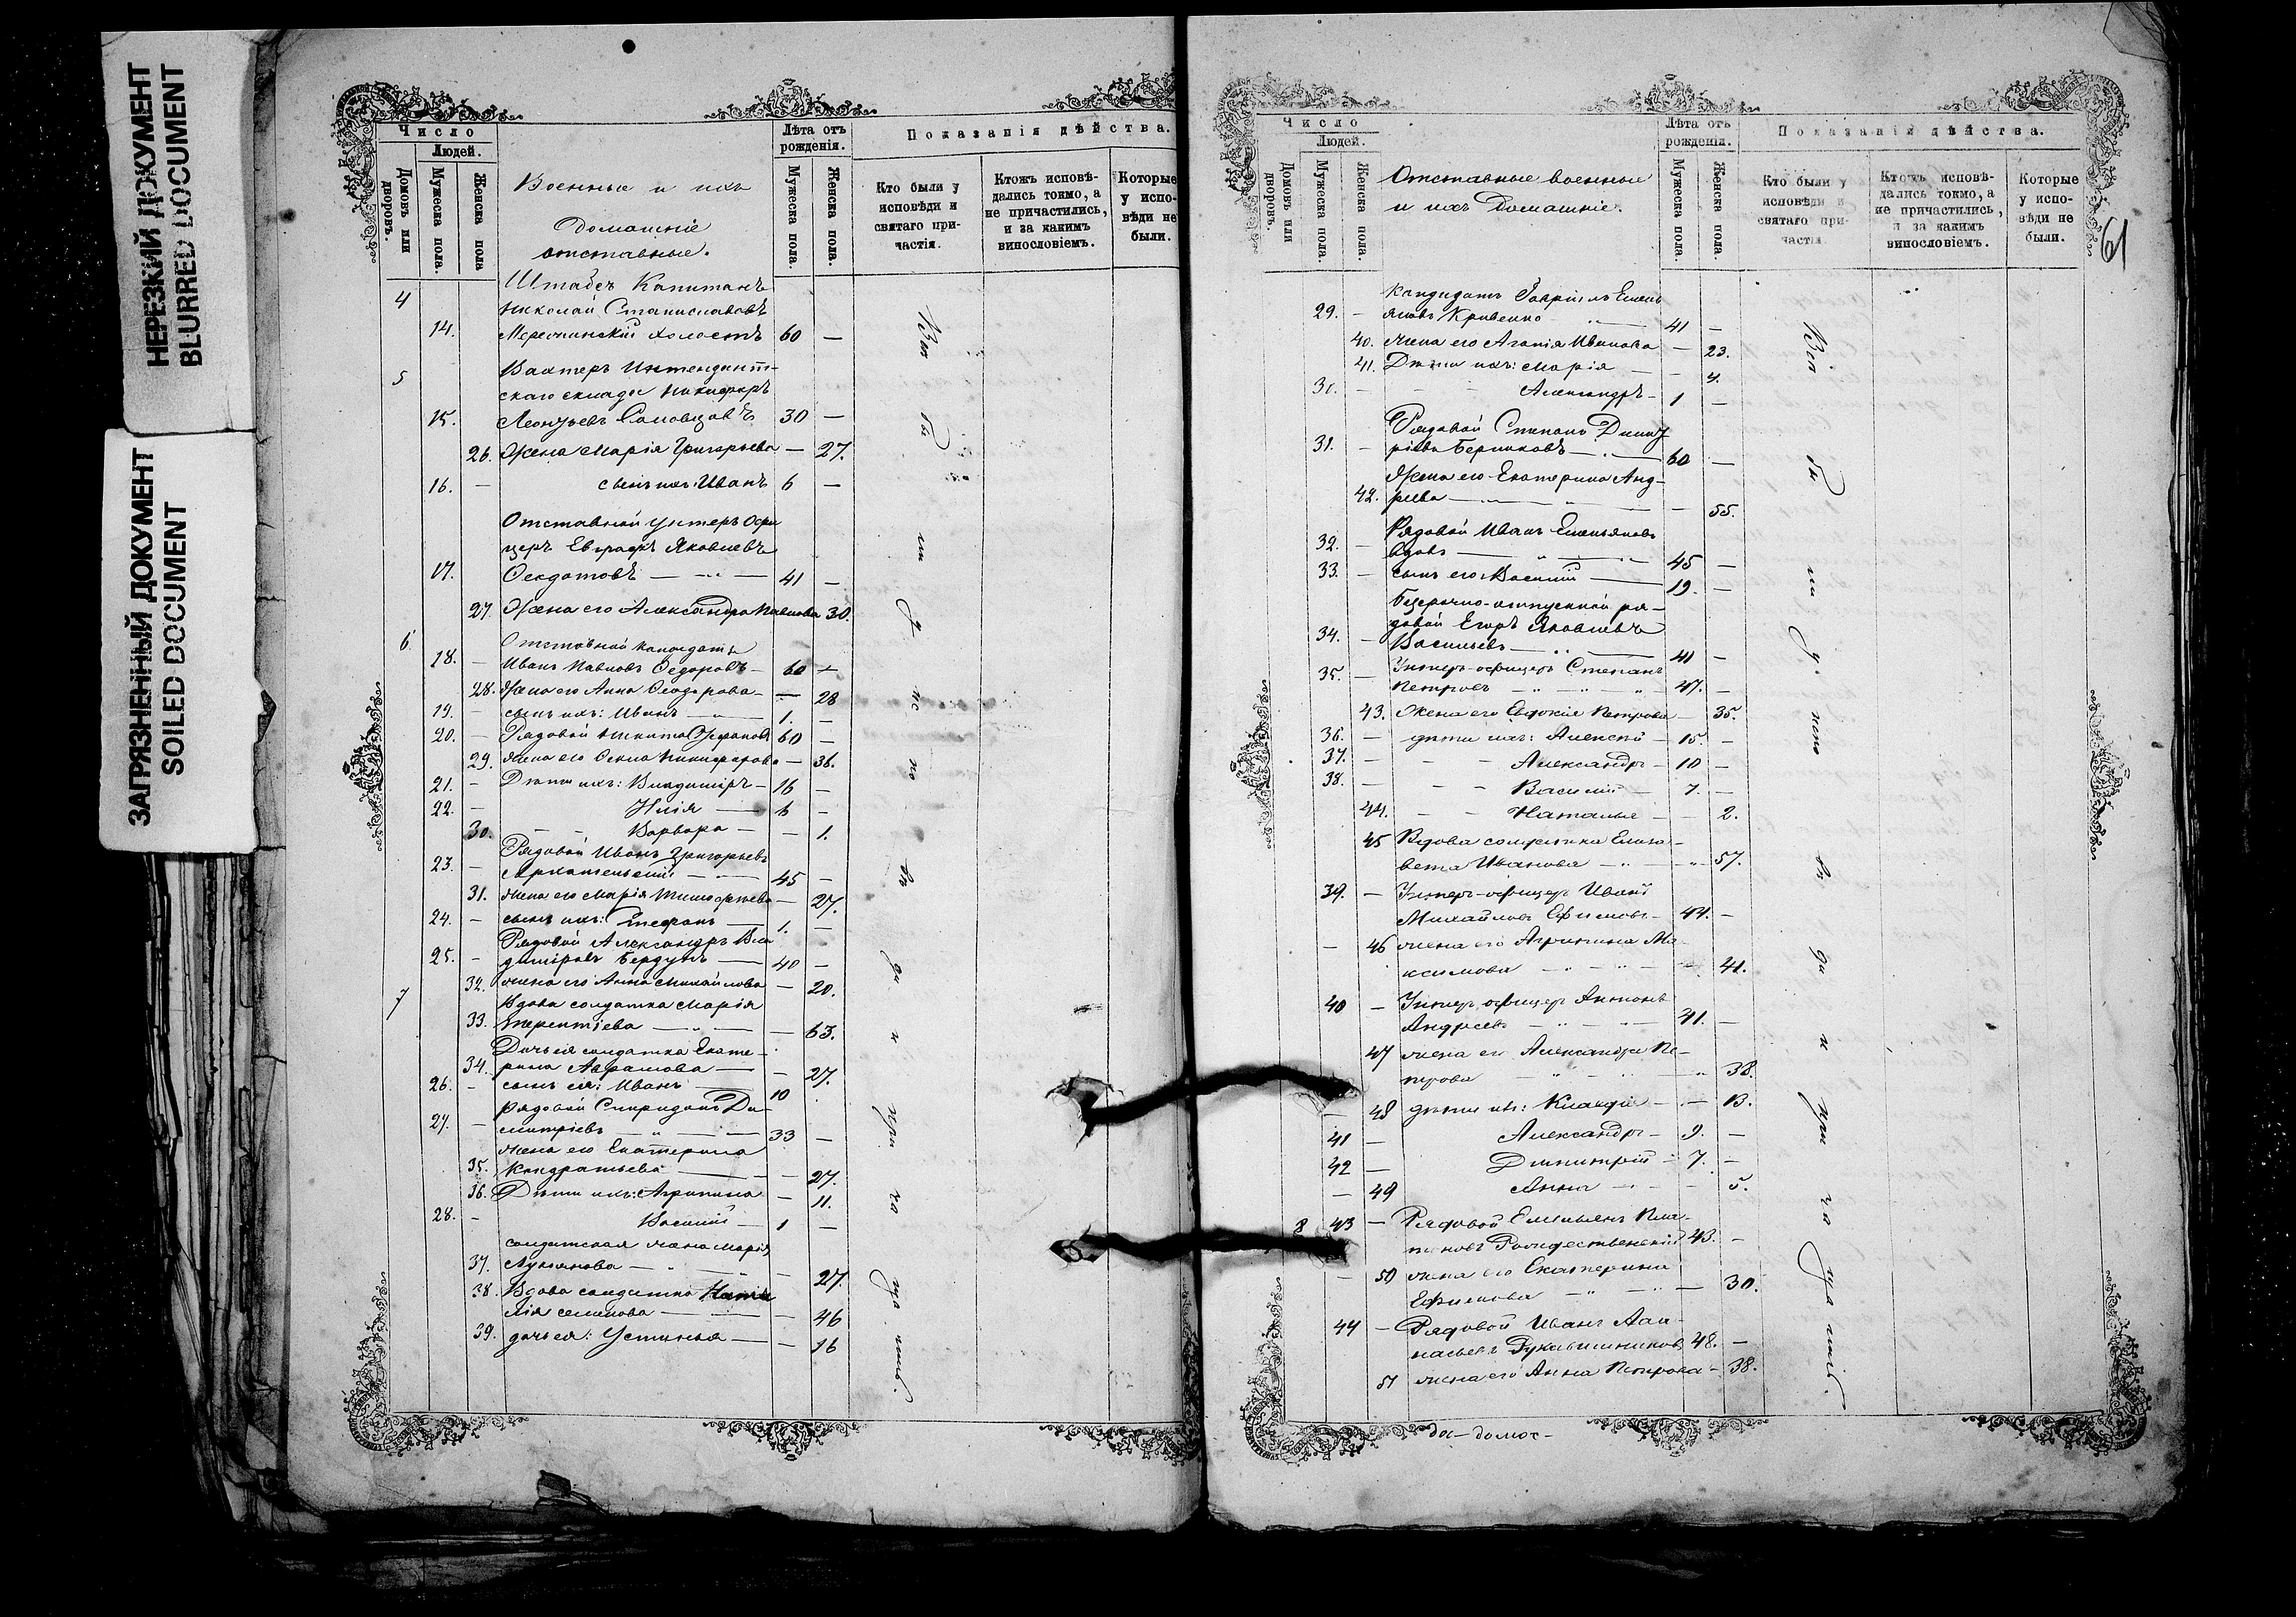 НЕРЕЗКИЙ ДОКУМЕНТ
BLURRED DOCUMENT
ЗАГРЯЗНЕННЫЙ ДОКУМЕНТ
SOILED DOCUMENT
Число
Людей.
Домовъ или дворовъ.
Мужеска пола.
Женска пола
Военные и ихъ
Домашніе
отставные.
Лѣта отъ рожденія.
Мужеска пола.
Женска пола.
Показанія дѣйства.
Кто были у исповѣди и святаго при-частія.
Ктожъ исповѣ-дались токмо, а не причастились, и за какимъ винословіемъ.
Которые у испо-вѣди не были.
4 Штабсъ Капитанъ
Николай Станиславовъ
14. холостъ 60 —
5 Вахтеръ Интендант-
скаго склада Никифоръ
15. Леонтьевъ 30 —
26. Жена Марія Григорьева — 27.
16. — сынъ ихъ: Иванъ 6 —
Отставной унтеръ офи
церъ Евграфъ Яковлевъ
17. Солдатовъ — 41 —
27. Жена его Александра Павлова 30.
6 Отставной кандидатъ
18. — Иванъ Павловъ Ѳедоровъ — 60 —
28. Жена его Анна Ѳеодорова — — 28
19. — сынъ ихъ: Иванъ — 1. —
20. — Рядовой Никита 60 —
29. жена его Никифорова — 36.
21. — Дѣти ихъ: Владиміръ — 16 —
22. — Илія — 6 —
30. — — Варвара — — 1.
Рядовой Иванъ Григорьевъ
23. — 45 —
31. жена его Марія Тимофеева — 27.
24. — сынъ ихъ: Стефанъ — 1. —
Рядовой Александръ Вла
25. — диміровъ Бердунъ — 40 —
32. жена его Анна Михайлова — 20.
7 Вдова солдатка Марія
33. Терентіева — — 63.
Дочь ея солдатка Екате-
34. рина Аврамова — — 27.
26. — сынъ ея: Иванъ — 10
рядовой Спиридонъ Ди-
27. — митріевъ — 33 —
жена его Екатерина
35. Кондратьева — — 27.
36. Дѣти ихъ: Агрипина — 11.
28. — Василій — 1 —
солдатская жена Марія
37. Лукьянова — — 27.
38. Вдова солдатка Ната
лія Семенова — — 46
39. дочь ея: Устинья — — 16
Вси бы ли у ис по вѣ ди и при ча ща лись.
61
Число
Людей.
Домовъ или дворовъ.
Мужеска пола.
Женска пола.
Отставные военные
и ихъ Домашніе.
Лѣта отъ рожденія.
Мужеска пола.
Женска пола.
Показанія дѣйства.
Кто были у исповѣди и святаго при-частія.
Ктожъ исповѣ-дались токмо, а не причастились, и за какимъ винословіемъ.
Которые у испо-вѣди не были.
Кандидатъ Гавріилъ Емель
29. — яновъ Кривенко 41 —
40. жена его Агапія Иванова — 23.
41. Дѣти ихъ: Марія — — 4.
30. — — Александръ — 1 —
Рядовой Степанъ Димит
31. — ріевъ 60 —
Жена его Екатерина Анд-
42. реева — — 55.
Рядовой Иванъ Емельяновъ
32. — вдовъ — 45 —
33. — сынъ его: Василій — 19. —
Безсрочно-отпускной ря-
довой Егоръ Яковлевъ
34. — Васильевъ — 41 —
Унтеръ-офицеръ Степанъ
35. — Петровъ — 47. —
43. Жена его Евдокія Петрова — 35.
36. — дѣти ихъ: Алексѣй — 15. —
37. — — Александръ — 10 —
38. — — Василій — 7. —
44. — Наталья — — 2.
45 Вдова солдатка Елиза-
вета Иванова — 57.
39. — Унтеръ-офицеръ Иванъ
Михайловъ Ефимовъ — 44. —
— 46 жена его Агрипина Ма-
ксимова — — 41.
40 — Унтеръ офицеръ Антонъ
Андреевъ — 41. —
47 жена его Александра Пе-
трова — 38.
— 48 дѣти ихъ: Клавдія — — 13.
41 — Александръ — 9. —
42 — Димитрій — 7. —
— 49 Анна — — 5.
8 43 — Рядовой Емельянъ Пла-
тоновъ Рождественскій 43. —
— 50 жена его Екатерина
Ефимова — — 30.
44 — Рядовой Иванъ Аѳа-
насьевъ Рукавишниковъ 48. —
51 жена его Анна Петрова — 38.
Вси бы ли у испо вѣ ди и при ча ща лись.